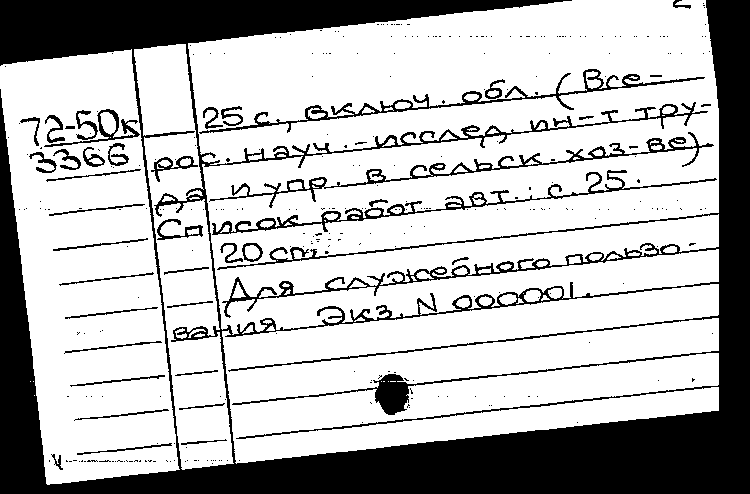 2
72-50к
3366
25 с., включ. обл. (Все-
рос. науч.-исслед. ин-т тру-
да и упр. в сельск. хоз-ве).
Список работ авт.: с. 25.
20 cm.
Для служебного пользо-
вания. Экз. N 000001.